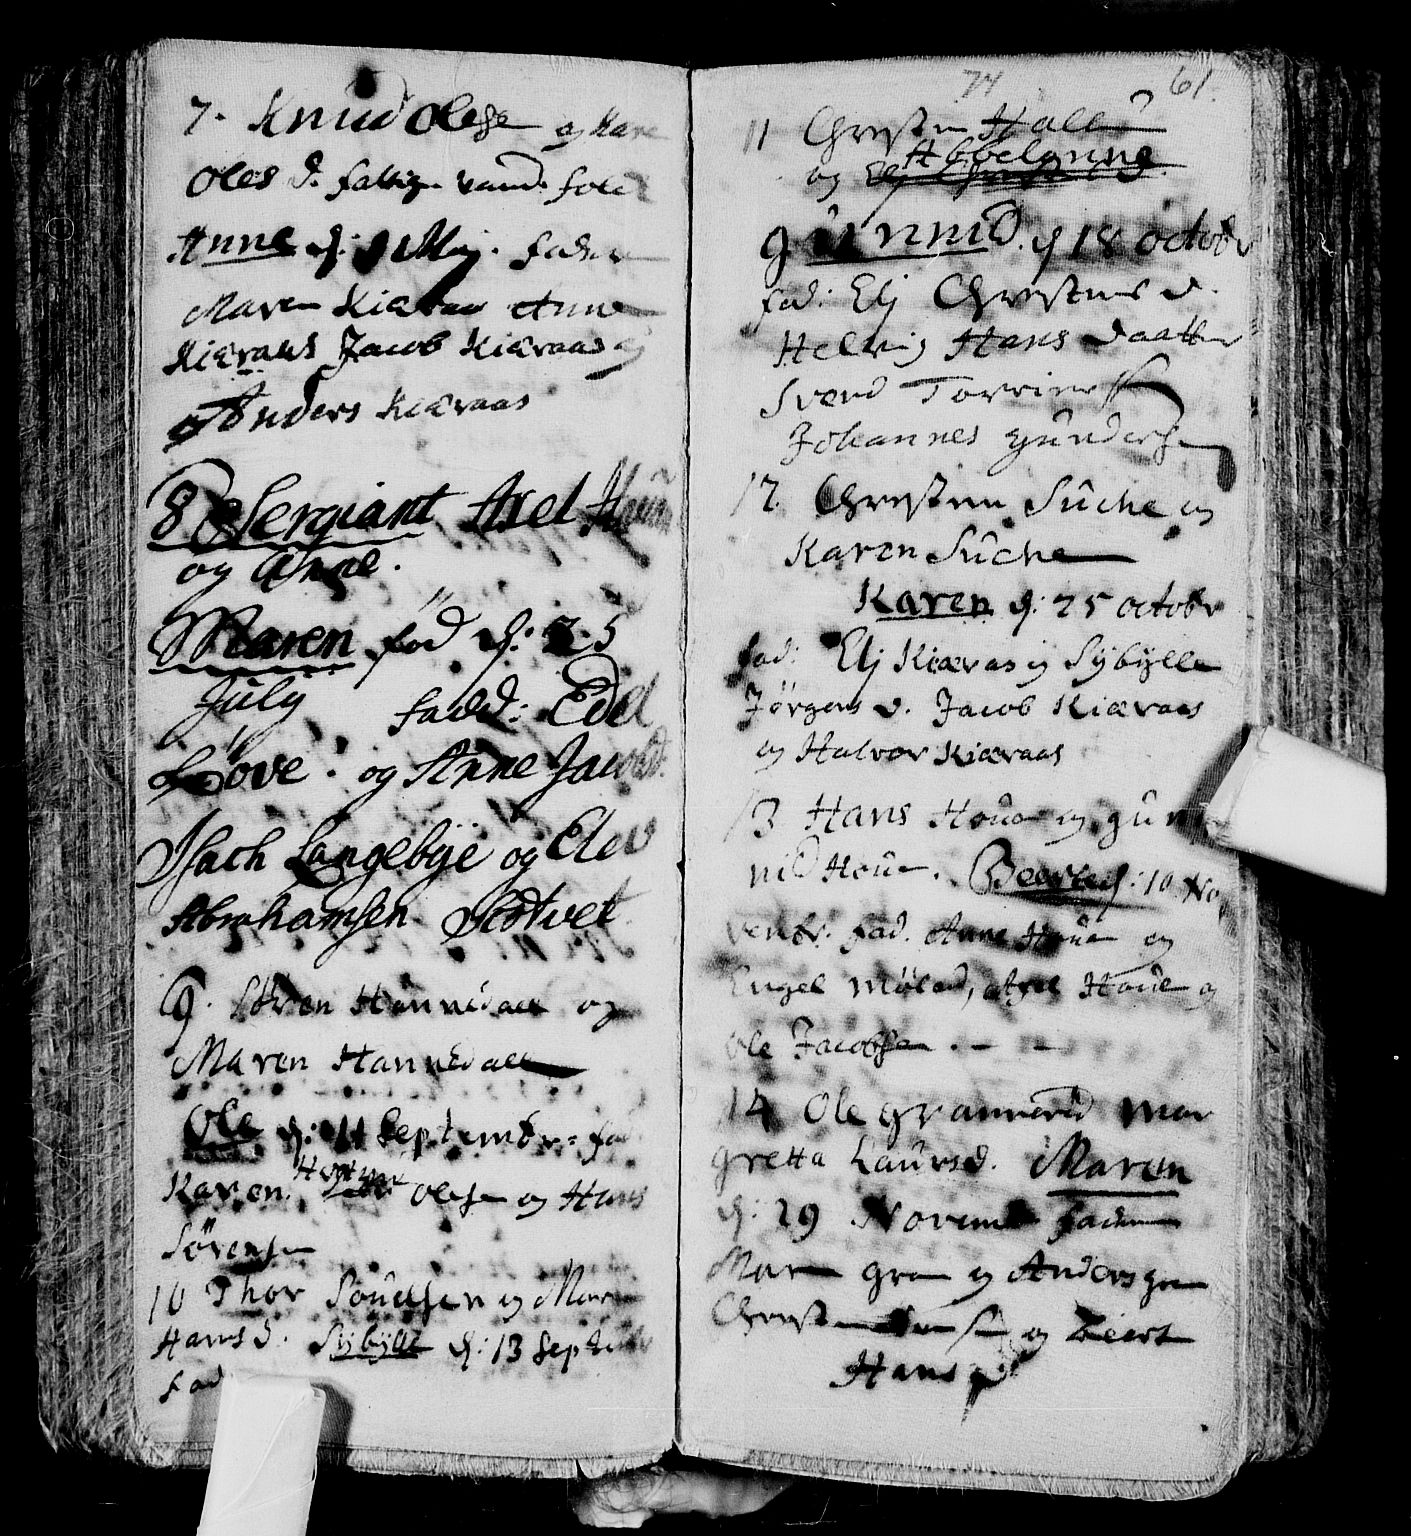 7. Knud Olesen og Kare
Oles d. fattige vand. folk
Anne d: 9 Maj. fadere
Maren Kiæraas Anne
Kiæraas Jacob Kiæraas og
Anders Kiæraas
8 Sergiant Axel
og Anne.
Maren fød d: 25
July fadd: Edel
Løve. og Anne Jacobsd.
Isach Langebye og Elev
Abrahamsen Skotvet
9. Søren Hannedall og
Maren Hannedall
Ole d: 11 Septembr: fad
Karen Olesen og Hans
Sørensen
10 Thor Povelsen og Maren
Hans d. Sybylle d: 13 Septembr
fad
74 61.
11 Christen Hall
Abbelone
og
Gunnild d 18 octobr
fad: Elj Christens d.
Helvig Hans daatter
Svend Torriers
Johannes Gundersen
12. Christen Suche og
Karen Suche
Karen d: 25 octobr
fad: Elj Kiæraas og Sybylle
Jørgens d. Jacob Kiæraas
og Halvor Kiæraas
13 Hans Houe og gun
nild Houe. d: 10 No
vembr. fad. Anne Houe og
Engel Møled, Axel Houe og
Ole Jacobsen - -
14 Ole Grannerød Mar
gretta Laursd. Maren
d: 29 Novem fadere
Maren gren og Anders gren
Christen og
Hans d